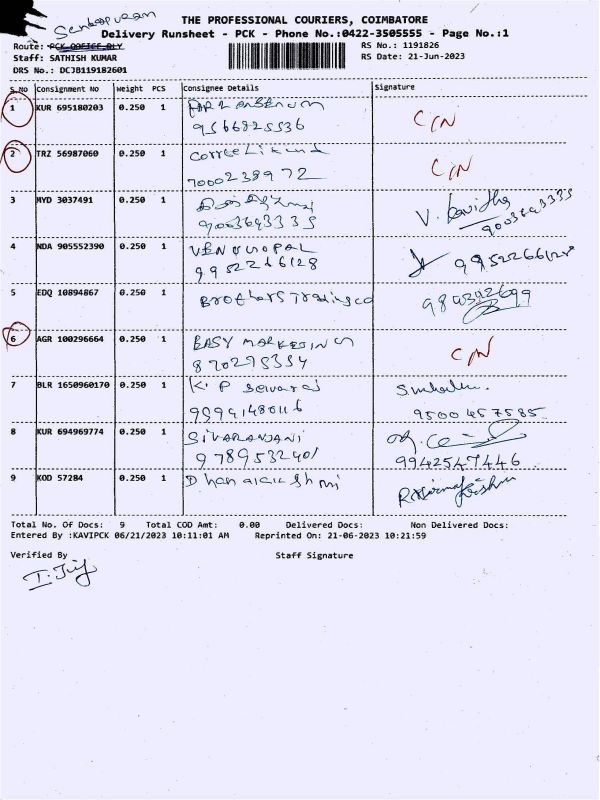 THE PROFESSIONAL COURIERS, COIMBATORE
Delivery Runsheet - PCK - Phone No.:0422-3505555 - Page No.:1
Route: PCK OFFICE DLY
RS No.: 1191826
Staff: SATHISH KUMAR
RS Date: 21-Jun-2023
DRS No.: DCJB119182601
S.No Consignment No Weight PCS Consignee Details Signature
1 KUR 695180203 0.250 1
9566825536 C/N
2 TRZ 56987060 0.250 1
7000238972 C/N
3 MYD 3037491 0.250 1 V. Kavidha
9003693335 9003693335
4 NDA 905552390 0.250 1 VENUGOPAL
9952266128 9952266128
5 EDQ 10894867 0.250 1 Brothers Trading co
6 AGR 100296664 0.250 1 EASY MARKETING
C/N
7 BLR 1650960170 0.250 1 K. P Selvaraj
9500457585
8 KUR 694969774 0.250 1 SIVARANJANI
9789532401 9942547446
9 KOD 57284 0.250 1 Dhanalakshmi
Total No. Of Docs: 9 Total COD Amt: 0.00 Delivered Docs: Non Delivered Docs:
Entered By :KAVIPCK 06/21/2023 10:11:01 AM Reprinted On: 21-06-2023 10:21:59
Verified By Staff Signature